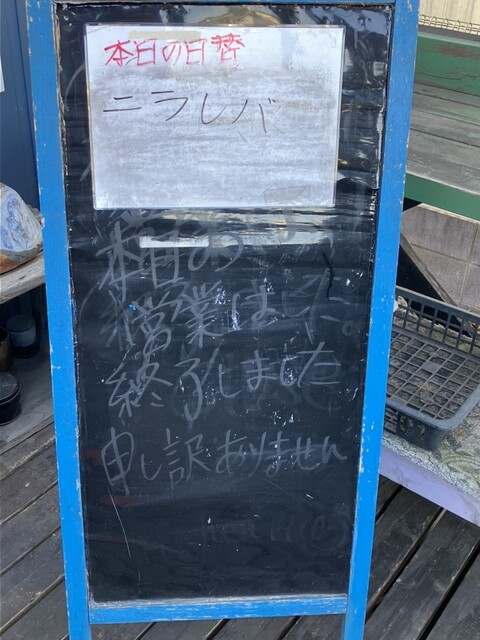 本日の日替
ニラレバ
本日の
営業は
終了しました
申し訳ありません